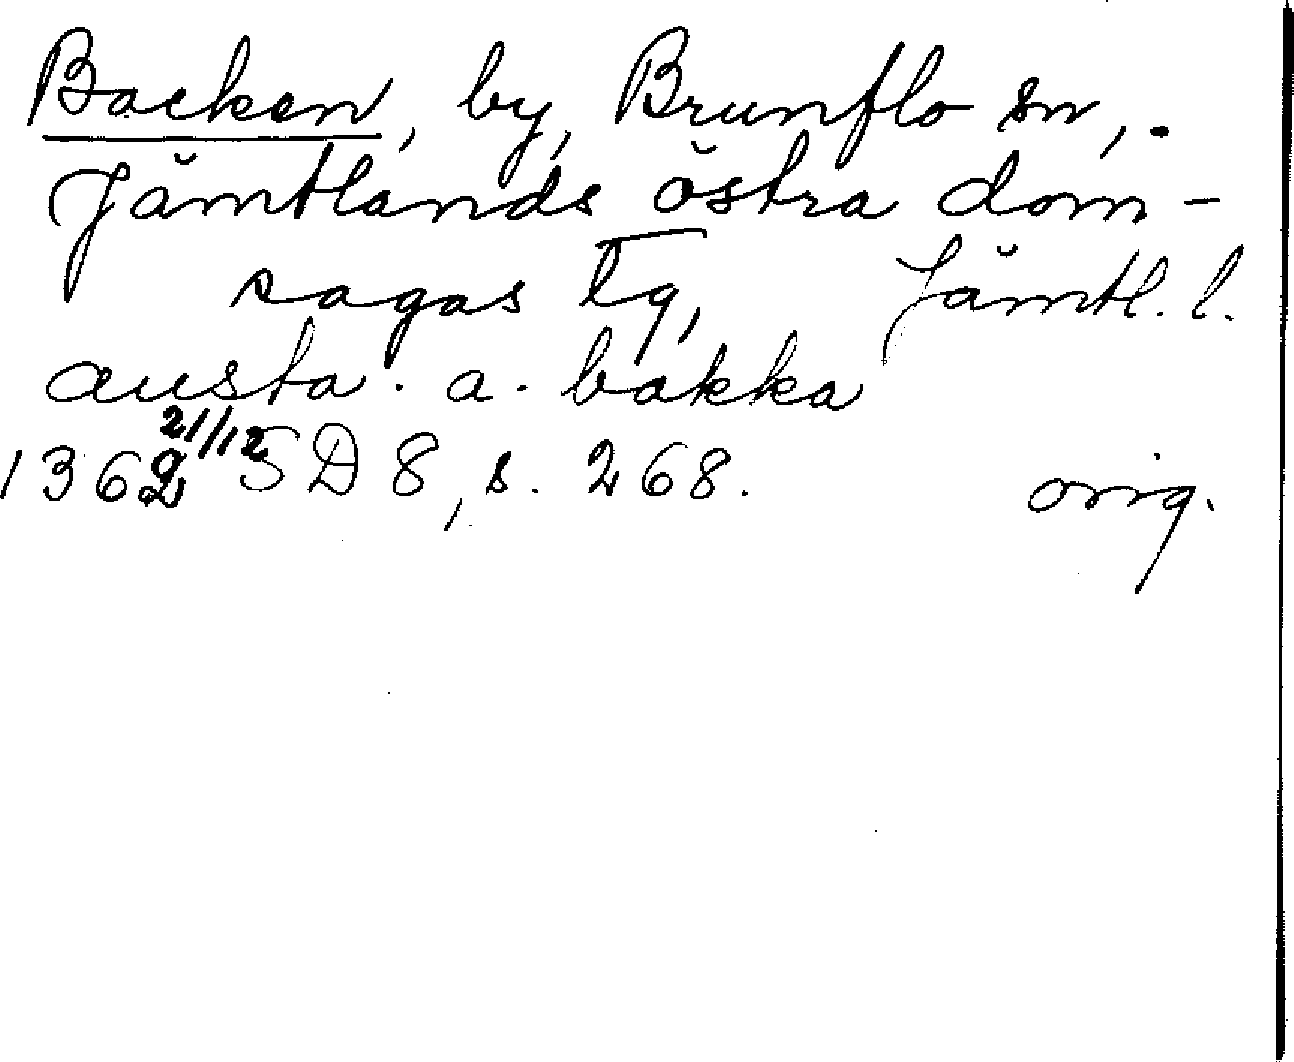 Backen, by, Brunflo sn,.
Jämtlands östra dom-
sagas tg, Jämtl. l.
austa. a. bakka
1362 21/12 SD 8, s. 268. orig.